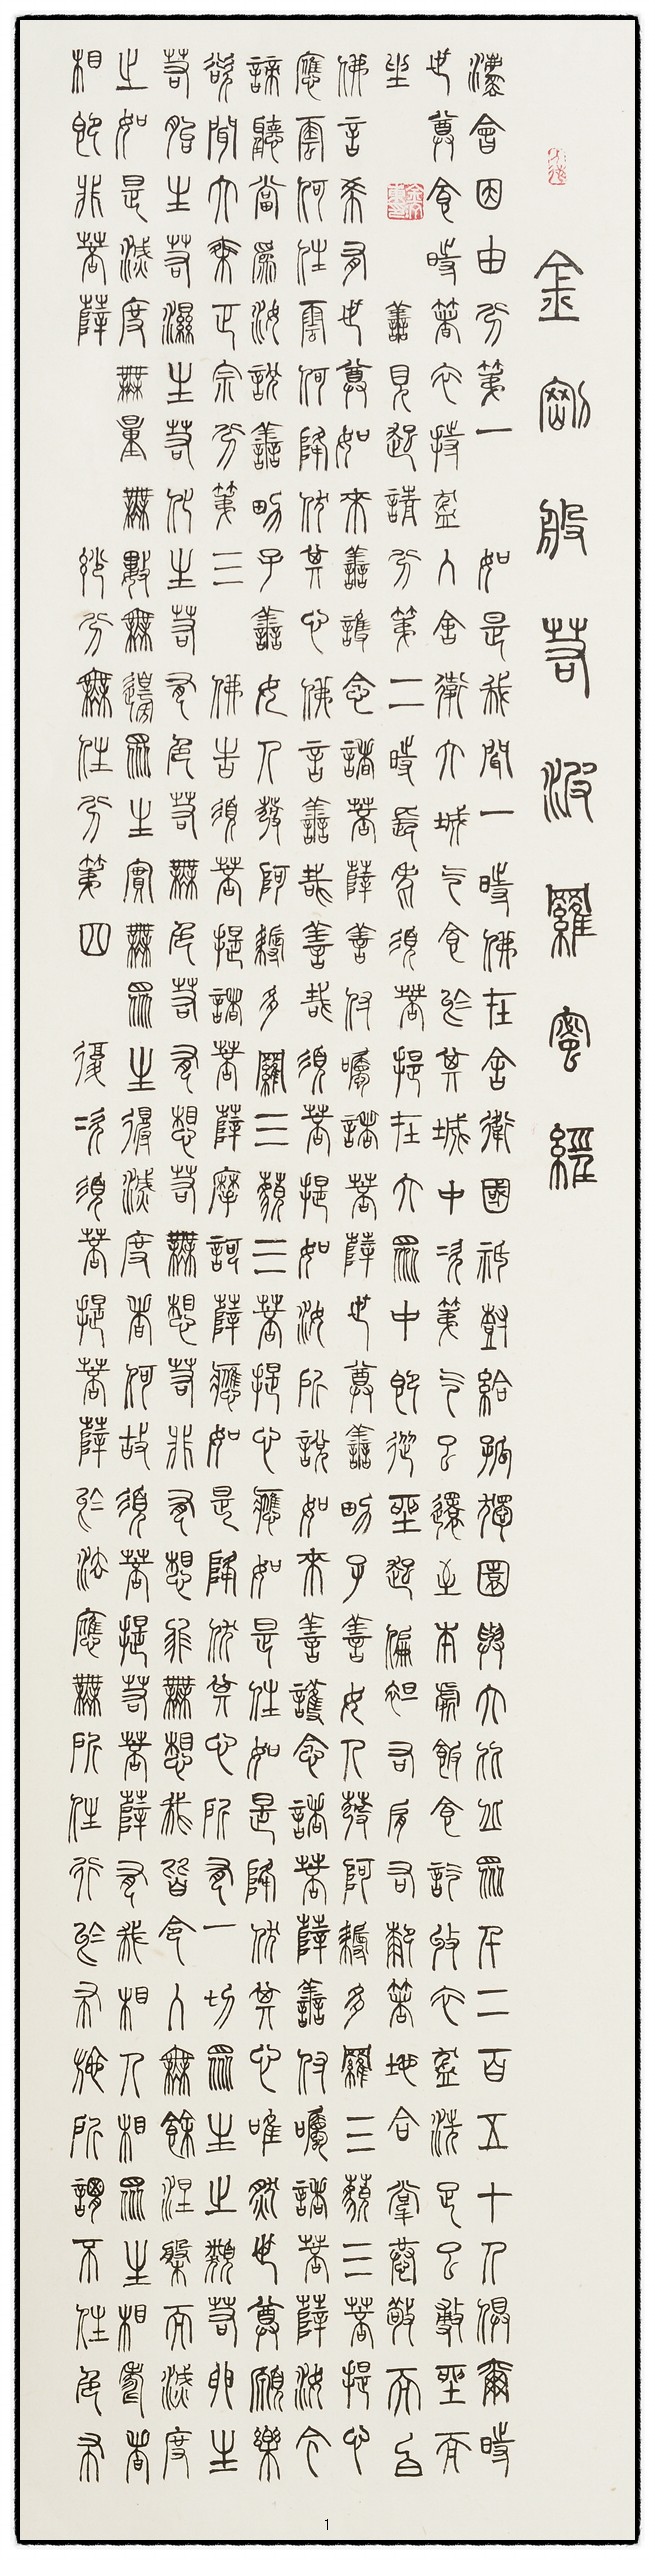 金剛般若波羅蜜經
法會因由分第一 如是我聞一時佛在舍衛國祇樹給孤獨園與大比丘眾千二百五十人俱爾時
世尊食時著衣持缽入舍衛大城乞食於其城中次第乞已還至本處飯食訖收衣缽洗足已敷座而
坐 善現起請分第二時長老須菩提在大眾中即從座起偏袒右肩右膝著地合掌恭敬而白
佛言希有世尊如來善護念諸菩薩善付囑諸菩薩世尊善男子善女人發阿耨多羅三藐三菩提心
應云何住云何降伏其心佛言善哉善哉須菩提如汝所說如來善護念諸菩薩善付囑諸菩薩汝今
諦聽當為汝說善男子善女人發阿耨多羅三藐三菩提心應如是住如是降伏其心唯然世尊願樂
欲聞大乘正宗分第三 佛告須菩提諸菩薩摩訶薩應如是降伏其心所有一切眾生之類若卵生
若胎生若濕生若化生若有色若無色若有想若無想若非有想非無想我皆令入無餘涅槃而滅度
之如是滅度無量無數無邊眾生實無眾生得滅度者何故須菩提若菩薩有我相人相眾生相壽者
相即非菩薩 妙行無住分第四 復次須菩提菩薩於法應無所住行於布施所謂不住色布
1